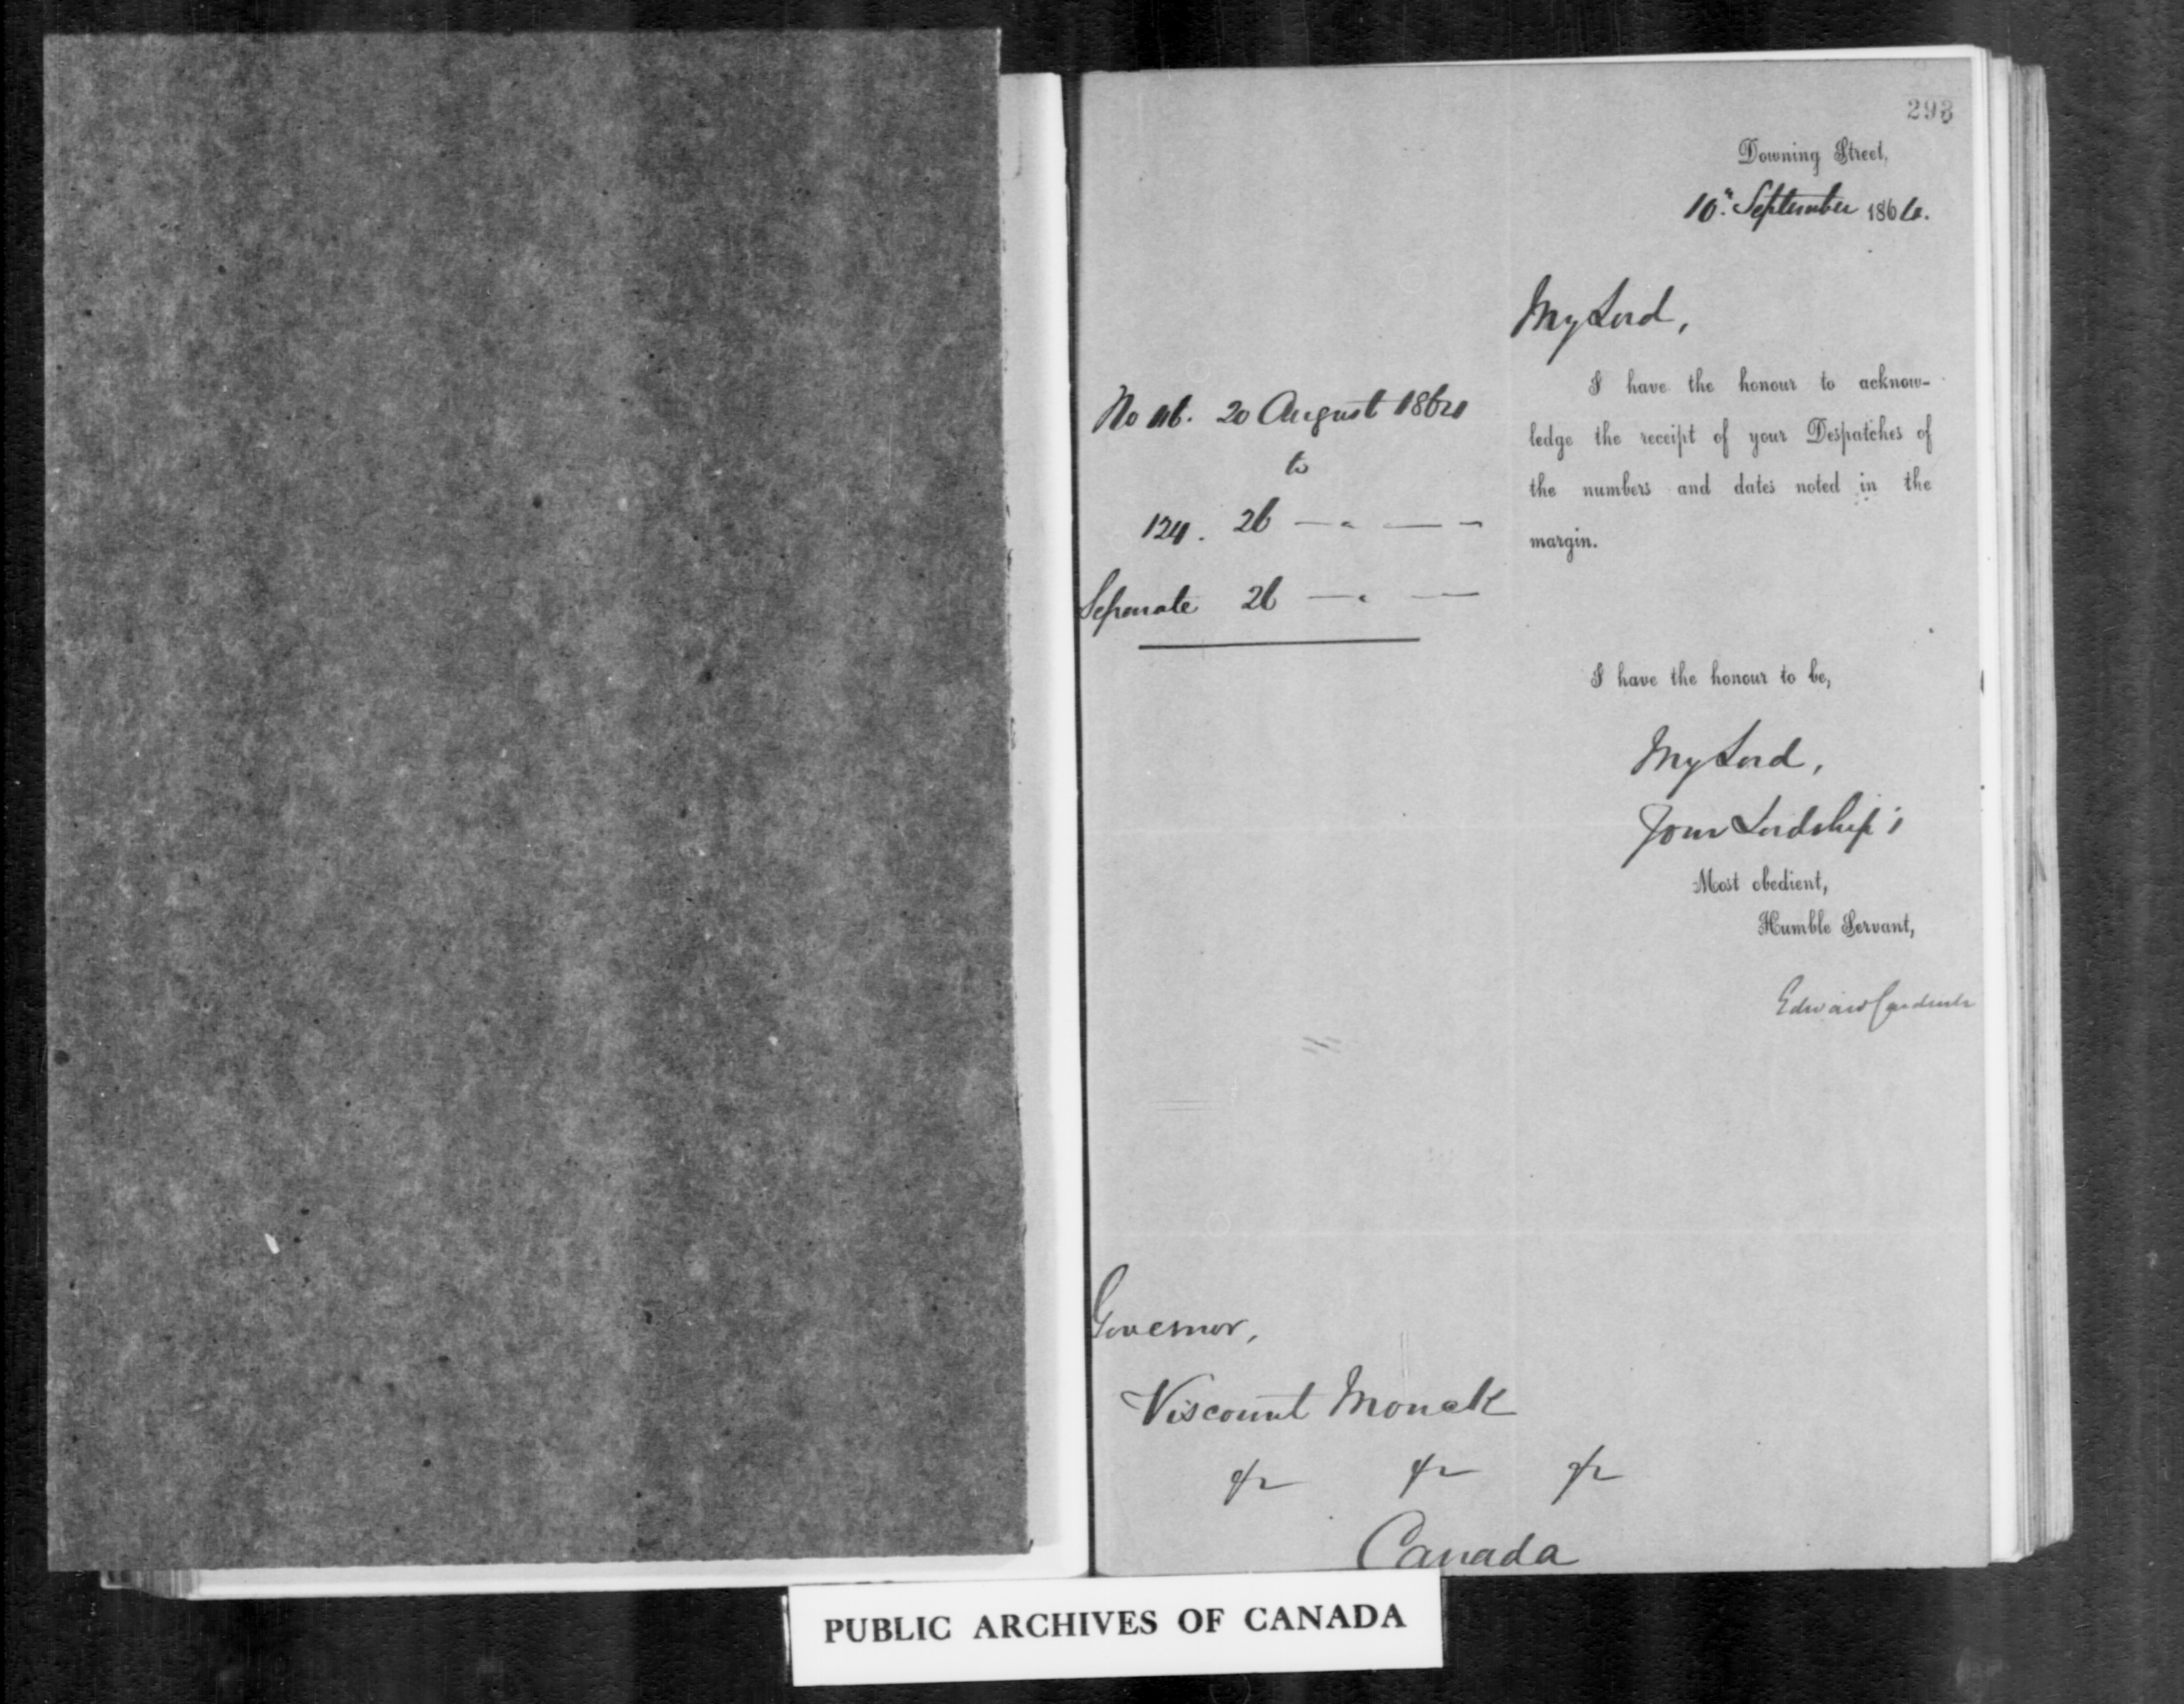 293
Downing Street,
10th September 1864.
My Lord,
I have the honour to acknow-
ledge the receipt of your Despatches of
the numbers and dates noted in the
margin.
No 116. 20 August 1864
to
124. 26 — " — —
Separate 26 — " —
I have the honour to be,
My Lord,
Your Lordship's
Most obedient,
Humble Servant,
Edward Cardwell
Governor,
Viscount Monck
&c &c &c
Canada
PUBLIC ARCHIVES OF CANADA